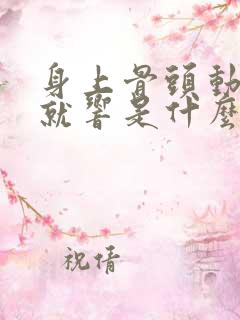 身上骨頭動
就響是什麼
祝倩